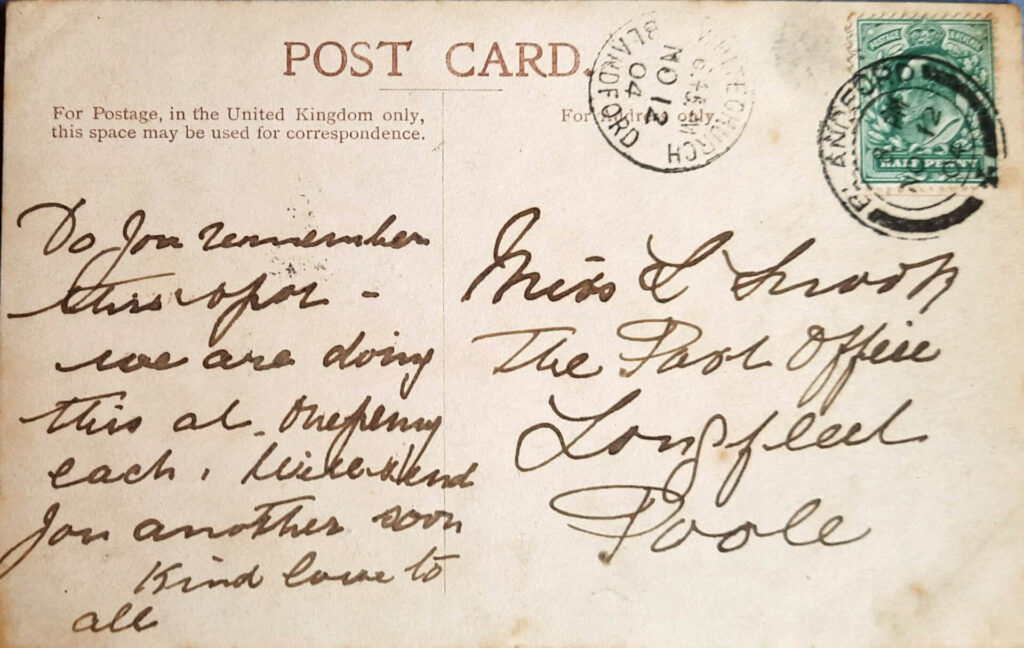 POST CARD.
For Postage, in the United Kingdom only,
this space may be used for correspondence.
For Address only.
WHITECHURCH
6.45 PM
NO 12
04
BLANDFORD
POSTAGE & REVENUE
HALF PENNY
BLANDFORD
NO 12
04
Do you remember
this spot -
we are doing
this at onepenny
each. Will send
you another soon
Kind love to
all
Miss L Snook
The Post Office
Longfleet
Poole